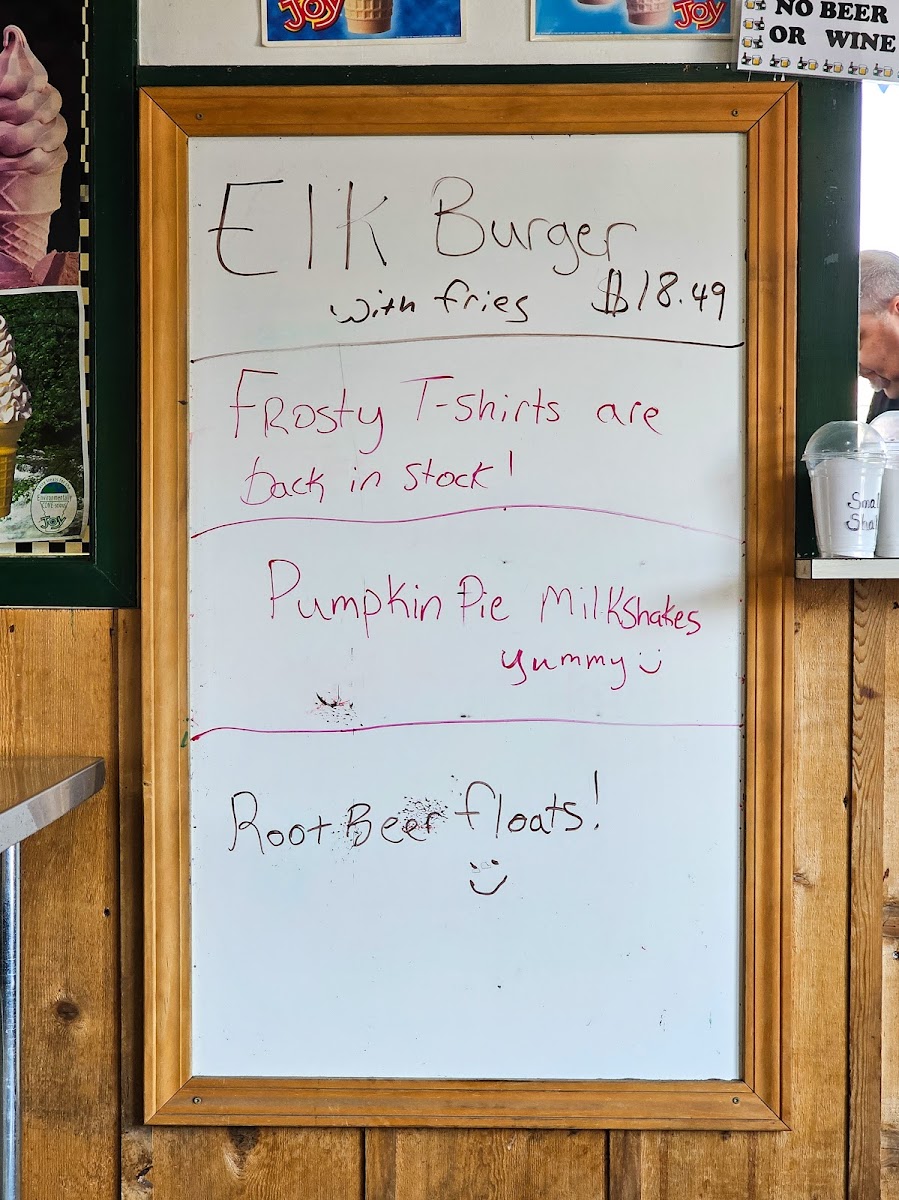 JOY
JOY
NO BEER
OR WINE
Elk Burger
with fries $18.49
FRosty T-Shirts are
back in stock!
Pumpkin Pie Milkshakes
yummy
Root Beer floats!
Environmentally
CONE-scious
JOY
Small